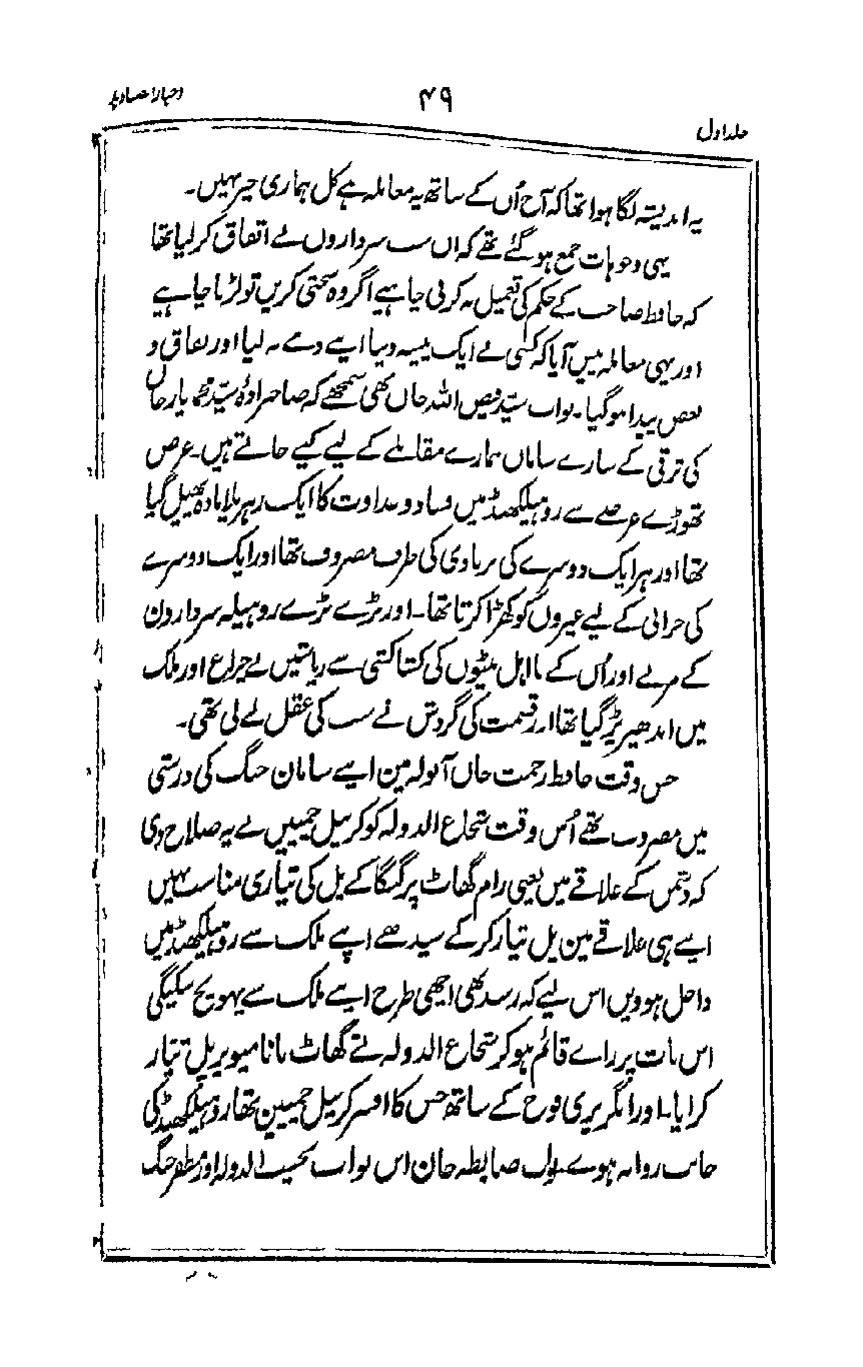 جلد اول
۴۹
اخبار الصنادید
یہ اندیشہ لگا ہوا تھا کہ آج اُن کے ساتھ یہ معاملہ ہے کل ہماری خیر نہیں۔
یہی وجوہات جمع ہو گئے تھے کہ ان سب سرداروں نے اتفاق کر لیا تھا
کہ حافظ صاحب کے حکم کی تعمیل نہ کرنی چاہیے اگر وہ سختی کریں تو لڑنا چاہیے
اور یہی معاملہ میں آیا کہ کسی نے ایک پیسہ دینا ایسے دے نہ لیا اور نفاق و
بغض پیدا ہو گیا۔ نواب سیّد فیض اللہ خاں بھی سمجھے کہ صاحبزادۂ سیّد محمد یار خاں
کی ترقی کے سارے سامان ہمارے مقابلے کے لیے کیے جاتے ہیں۔ غرض
تھوڑے عرصے سے روہیلکھنڈ میں فساد و عداوت کا ایک زہریلا مادہ پھیل گیا
تھا اور ہر ایک دوسرے کی بربادی کی طرف مصروف تھا اور ایک دوسرے
کی خرابی کے لیے غیروں کو کھڑا کرتا تھا۔ اور بڑے بڑے روہیلہ سردارون
کے مرنے اور اُن کے نااہل بیٹوں کی کشاکشی سے ریاستیں بے چراغ اور ملک
میں اندھیر پڑ گیا تھا اور قسمت کی گردش نے سب کی عقل لے لی تھی۔
جس وقت حافظ رحمت خاں آنولہ مین اپنے سامان جنگ کی درستی
میں مصروف تھے اُس وقت شجاع الدولہ کو کرنیل چمپین نے یہ صلاح دی
کہ دشمن کے علاقے میں یعنی رام گھاٹ پر گنگا کے پل کی تیاری مناسب نہیں
اپنے ہی علاقے مین پل تیار کر کے سیدھے اپنے ملک سے روہیلکھنڈ میں
داخل ہوویں اس لیے کہ رسد بھی اچھی طرح اپنے ملک سے پہونچ سکیگی
اس بات پر راے قائم ہو کر شجاع الدولہ نے گھاٹ نانامیو پر پل تیار
کرایا۔ اور انگریزی فوج کے ساتھ جس کا افسر کرنیل چمپین تھا روہیلکھنڈ کی
جانب روانہ ہوے۔ نواب ضابطہ خان ابن نواب نجیب الدولہ اور مظفر جنگ